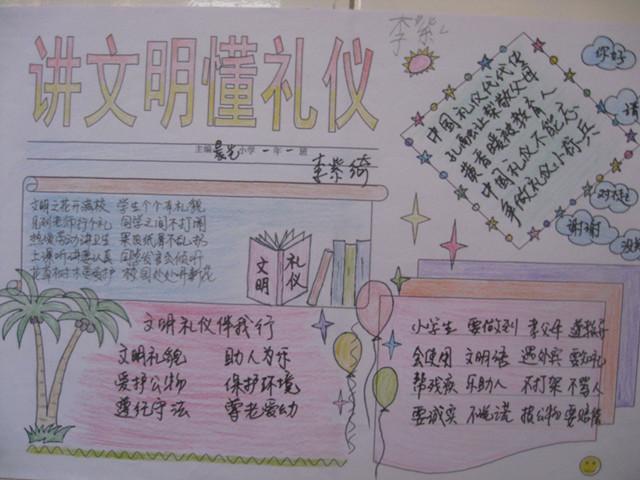 李紫
讲文明懂礼仪
主编 晨光 小学 一 年 一 班
李紫绮
你好
中国礼仪代代传
孔融让梨敬父母
黄香暖被教育人
中国礼仪不能忘
争做礼仪小标兵
对不起
谢谢
文明之花开满校 学生个个有礼貌
见到老师行个礼 同学之间不打闹
热爱劳动讲卫生 果皮纸屑不乱扔
上课听讲要认真 回答发言会倾听
花草树木要爱护 校园处处开新花
文明
礼仪
文明礼仪伴我行
文明礼貌 助人为乐
爱护公物 保护环境
遵纪守法 尊老爱幼
小学生 要做到
会使用 文明语 遇外宾 要知礼
帮残疾 乐助人 不打架 不骂人
要诚实 不说谎 损公物 要赔偿